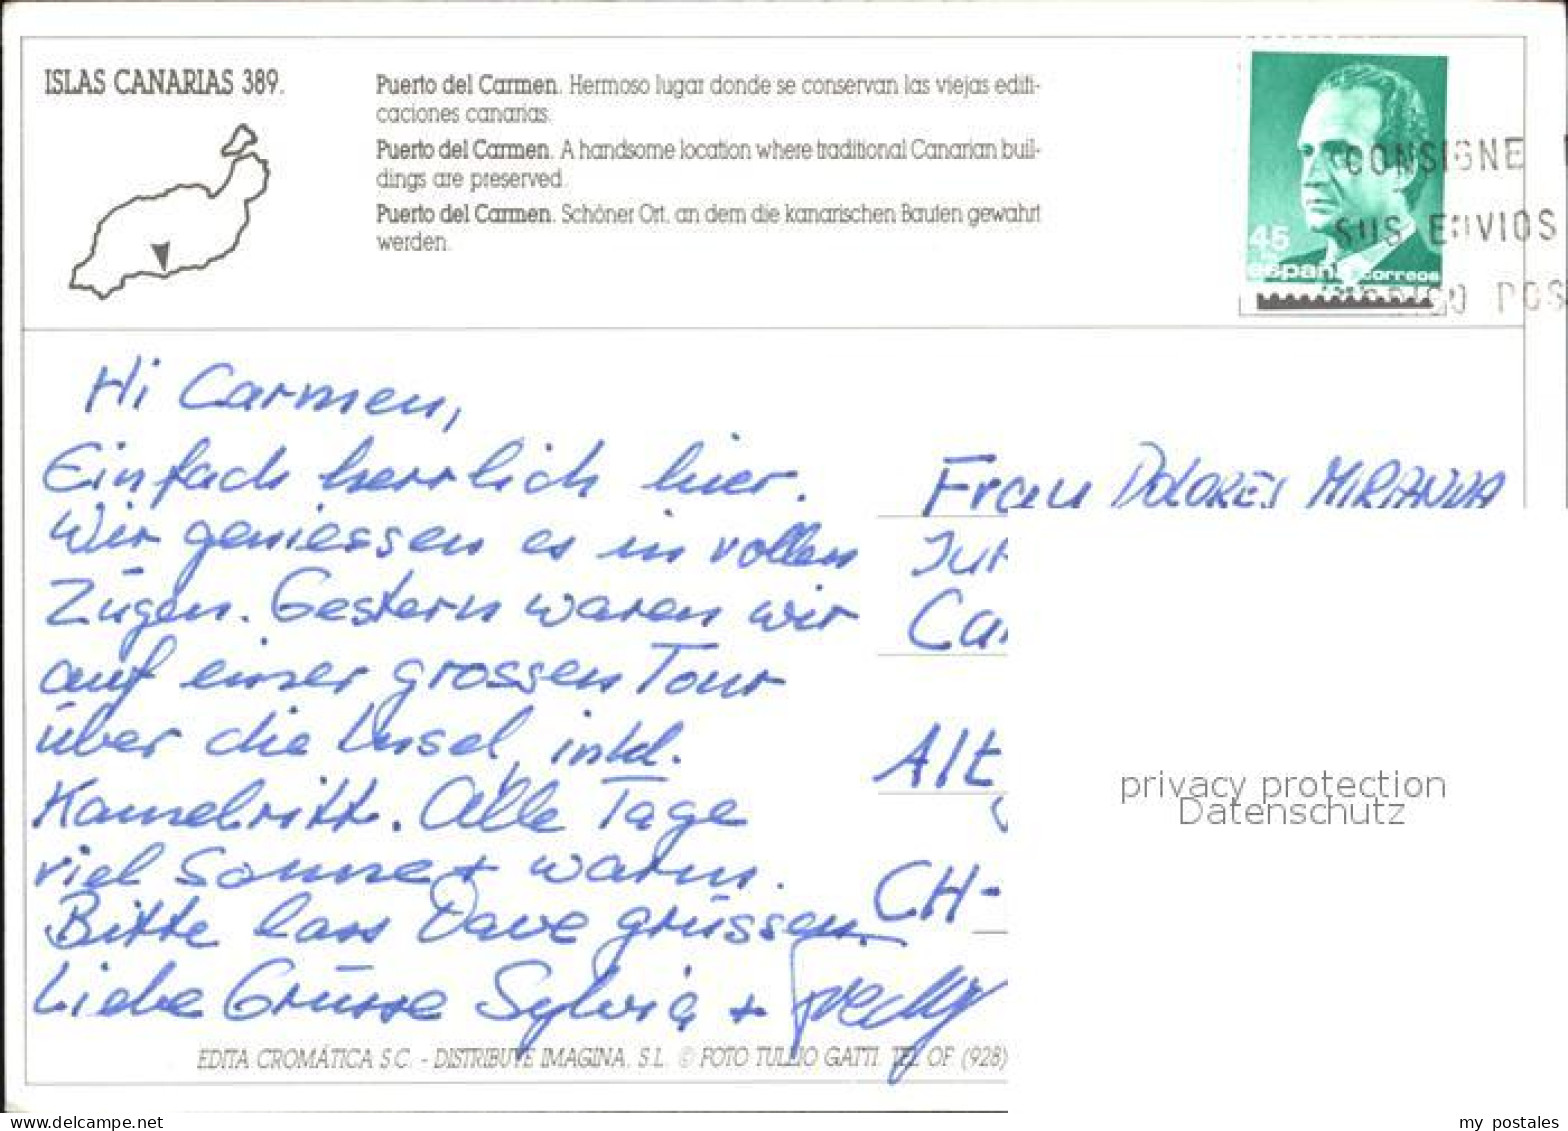 ISLAS CANARIAS 389.
Puerto del Carmen. Hermoso lugar donde se conservan las viejas edifi-
caciones canarias.
Puerto del Carmen. A handsome location where traditional Canarian buil-
dings are preserved.
Puerto del Carmen. Schöner Ort, an dem die kanarischen Bauten gewahrt
werden.
45
españa correos
CONSIGNE
SUS ENVIOS
POS
Hi Carmen,
Einfach herrlich hier.
Wir geniessen es in vollen
Zügen. Gestern waren wir
auf einer grossen Tour
über die Insel, inkl.
Kamelritt. Alle Tage
viel Sonne + warm.
Bitte lass Dave grüssen.
Liebe Grüsse Sylvia +
Frau DOLORES MIRANDA
Alt
CH-
privacy protection
Datenschutz
EDITA CROMÁTICA S.C. - DISTRIBUYE IMAGINA, S.L. © FOTO TULLIO GATTI. TEL. OF. (928)
www.delcampe.net
my_postales